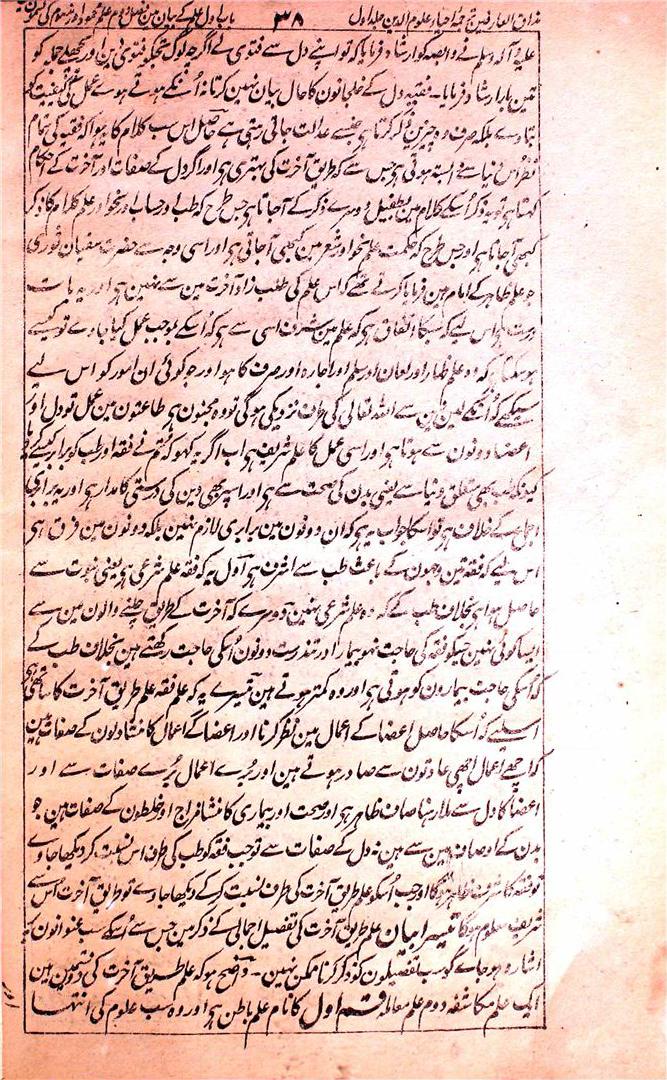 مذاق العارفین ترجمہ احیاء علوم الدین جلد اول ۳۸ باب اول علم کے بیان مین فصل دوم علم محمود و مذموم کی
علیہ وآلہ وسلم نے وابصہ کو ارشاد فرمایا کہ تو اپنے دل سے فتوی لے اگرچہ لوگ تجھکو فتوی دین اور پچھلے جملہ کو
تین بار ارشاد فرمایا۔ فقیہ دل کے خلجانون کا حال بیان نہین کرتا نہ اُنکے ہوتے ہوئے عمل کی کیفیت کو
بتاوے بلکہ صرف وہ چیز بیان کرتا ہے جس سے عدالت جاتی رہتی ہے حاصل اس سب کلام کا یہ ہوا کہ فقیہ کی تمام
نظر اُس دنیا سے وابستہ ہوتی ہے جس سے کہ طریق آخرت کی بہتری ہے اور اگر دل کے صفات اور آخرت کے احکام
کہتا ہے تو یہ ذکر اُسکے کلام مین بطفیل دوسرے ذکر کے آجاتا ہے جس طرح کہ طب اور حساب اور نجوم اور علم کلام کا ذکر
کبھی آجاتا ہے اور جس طرح کہ حکمت علم نحو اور شعر مین کبھی آجاتی ہے اور اسی وجہ سے حضرت سفیان ثوری
جو علم ظاہر کے امام ہین فرمایا کرتے تھے کہ اس علم کی طلب زاد آخرت مین سے نہین ہے اور یہ بات
درست ہے اس لیے کہ سبکا اتفاق ہے کہ علم مین شرف اسی سے ہے کہ اُسکے بموجب عمل کیا جاوے تو کیسے
ہوسکتا ہے کہ وہ علم ظہار اور لعان اور سلم اور اجارہ اور صرف کا ہو اور جو کوئی ان امور کو اس لیے
سیکھے کہ اُنکے لین دین سے اللہ تعالی کی طرف نزدیکی ہوگی تو وہ مجنون ہے طاعتون مین عمل تو دل اور
اعضا دونون سے ہوتا ہے اور اسی عمل کا علم شریف ہے اب اگر یہ کہو کہ تم نے فقہ اور طب کو برابر کیسے کر دیا
کیونکہ طب بھی متعلق دنیا سے یعنی بدن کی صحت سے ہے اور اسپر بھی دین کی درستی کا مدار ہے اور یہ برابری
اجماع کے خلاف ہے تو اسکا جواب یہ ہے کہ ان دونون مین برابری لازم نہین بلکہ دونون مین فرق ہے
اس لیے کہ فقہ تین وجہون کے باعث طب سے اشرف ہے اول یہ کہ فقہ علم شرعی ہے یعنی نبوت سے
حاصل ہوا ہے بخلاف طب کے کہ وہ علم شرعی نہین دوسرے یہ کہ آخرت کے طریق چلنے والون مین سے
ایسا کوئی نہین جسکو فقہ کی حاجت نہو بیمار اور تندرست دونون اُسکی حاجت رکھتے ہین بخلاف طب کے
کہ اُسکی حاجت بیمارون کو ہوتی ہے اور وہ کمتر ہوتے ہین تیسرے یہ کہ علم فقہ علم طریق آخرت کا ساتھی ہے
اسلیے کہ اُسکا حاصل اعضا کے اعمال مین نظر کرنا ہے اور اعضا کے اعمال کا منشا دلون کے صفات ہین
کہ اچھے اعمال اچھی عادتون سے صادر ہوتے ہین اور بُرے اعمال بُرے صفات سے اور
اعضا کا دل سے ملا رہنا صاف ظاہر ہے اور صحت اور بیماری کا منشا مزاج اور خلطون کے صفات ہین جو
بدن کے اوصاف مین سے ہین نہ دل کے صفات سے تو جب فقہ کو طب کی طرف نسبت کر دیکھا جاوے
تو فقہ کا شرف ظاہر ہوگا اور جب اُسکو علم طریق آخرت کی طرف نسبت کر کے دیکھا جاوے تو طریق آخرت اُس سے
شریف معلوم ہوگا تیسرا بیان علم طریق آخرت کی تفصیل اجمالی کے ذکر مین جس سے اُسکے سب عنوانون کی
اشارہ ہو جاے گو سب تفصیلون کو ذکر کرنا ممکن نہین۔ واضح ہو کہ علم طریق آخرت کی دو قسمین ہین
ایک علم مکاشفہ دوم علم معاملہ قسم اول کا نام علم باطن ہے اور وہ سب علوم کی انتہا